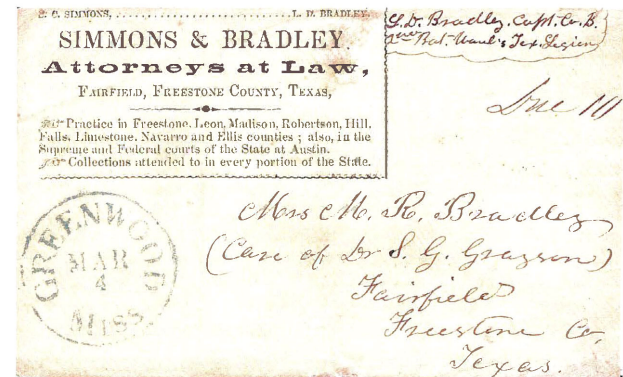 S. C. SIMMONS, L. D. BRADLEY.
SIMMONS & BRADLEY.
Attorneys at Law,
FAIRFIELD, FREESTONE COUNTY, TEXAS,
Practice in Freestone, Leon, Madison, Robertson, Hill,
Falls, Limestone, Navarro and Ellis counties ; also, in the
Supreme and Federal courts of the State at Austin.
Collections attended to in every portion of the State.
L. D. Bradley. Capt. Co. B.
Bat. Waul's Tex. Legion
Due 10
GREENWOOD
MAR
4
MISS
Mrs M. R. Bradley
(Care of Dr S. G. Grayson)
Fairfield
Freestone Co,
Texas.